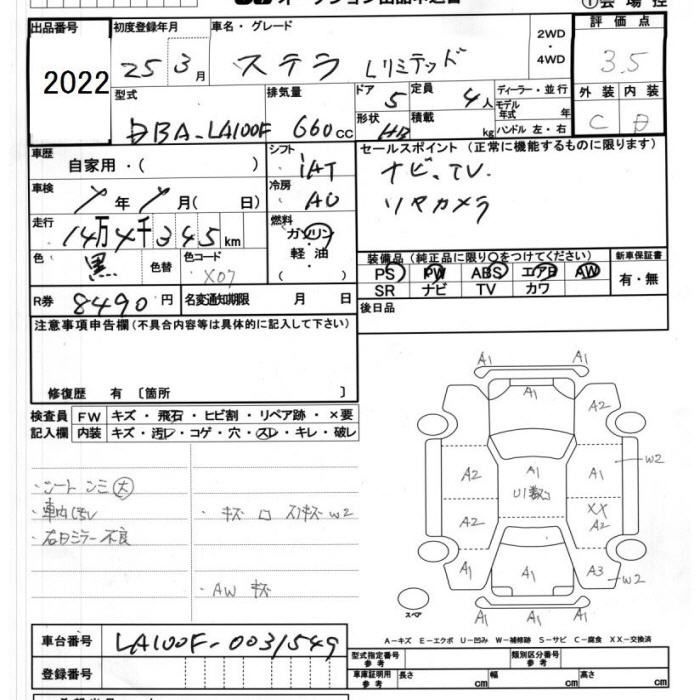 出品番号 初度登録年月 車名・グレード 2WD・4WD 評価点
2022 25 3月 ステラ Lリミテッド 3.5
型式 排気量 ドア 定員 ディーラー・並行 外装 内装
DBA-LA100F 660cc 5 4人 モデル年式 年 C D
形状 HB 積載 kg ハンドル 左・右
車歴 自家用・( ) シフト IAT セールスポイント (正常に機能するものに限ります)
車検 年 月( 日) 冷房 AC ナビ、TV.
リヤカメラ
走行 14万4千345km 燃料 ガソリン
軽油・
( )
色 黒 色替 色コード X07
装備品(純正品に限り○をつけてください) 新車保証書
PS PW ABS エアB AW 有・無
SR ナビ TV カワ
R券 8490円 名変通知期限 月 日 後日品
注意事項申告欄(不具合内容等は具体的に記入して下さい)
修復歴 有 〔箇所 〕
検査員 FW キズ・飛石・ヒビ割・リペア跡・×要
記入欄 内装 キズ・汚レ・コゲ・穴・スレ・キレ・破レ
・シート シミ 大
・車内汚レ
・右ミラー不良
・キズ W2
・AW キズ
A1
A1 A1
A2
A2 A1 A2 W2
U1数コ
A2 XX A2
A1 A1 A3 W2
A1
スペア
A-キズ E-エクボ U-凹み W-補修跡 S-サビ C-腐食 XX-交換済
車台番号 LA100F-0031549
登録番号
型式指定番号 参考 類別区分番号 参考
車庫証明用 参考 長さ cm 幅 cm 高さ cm